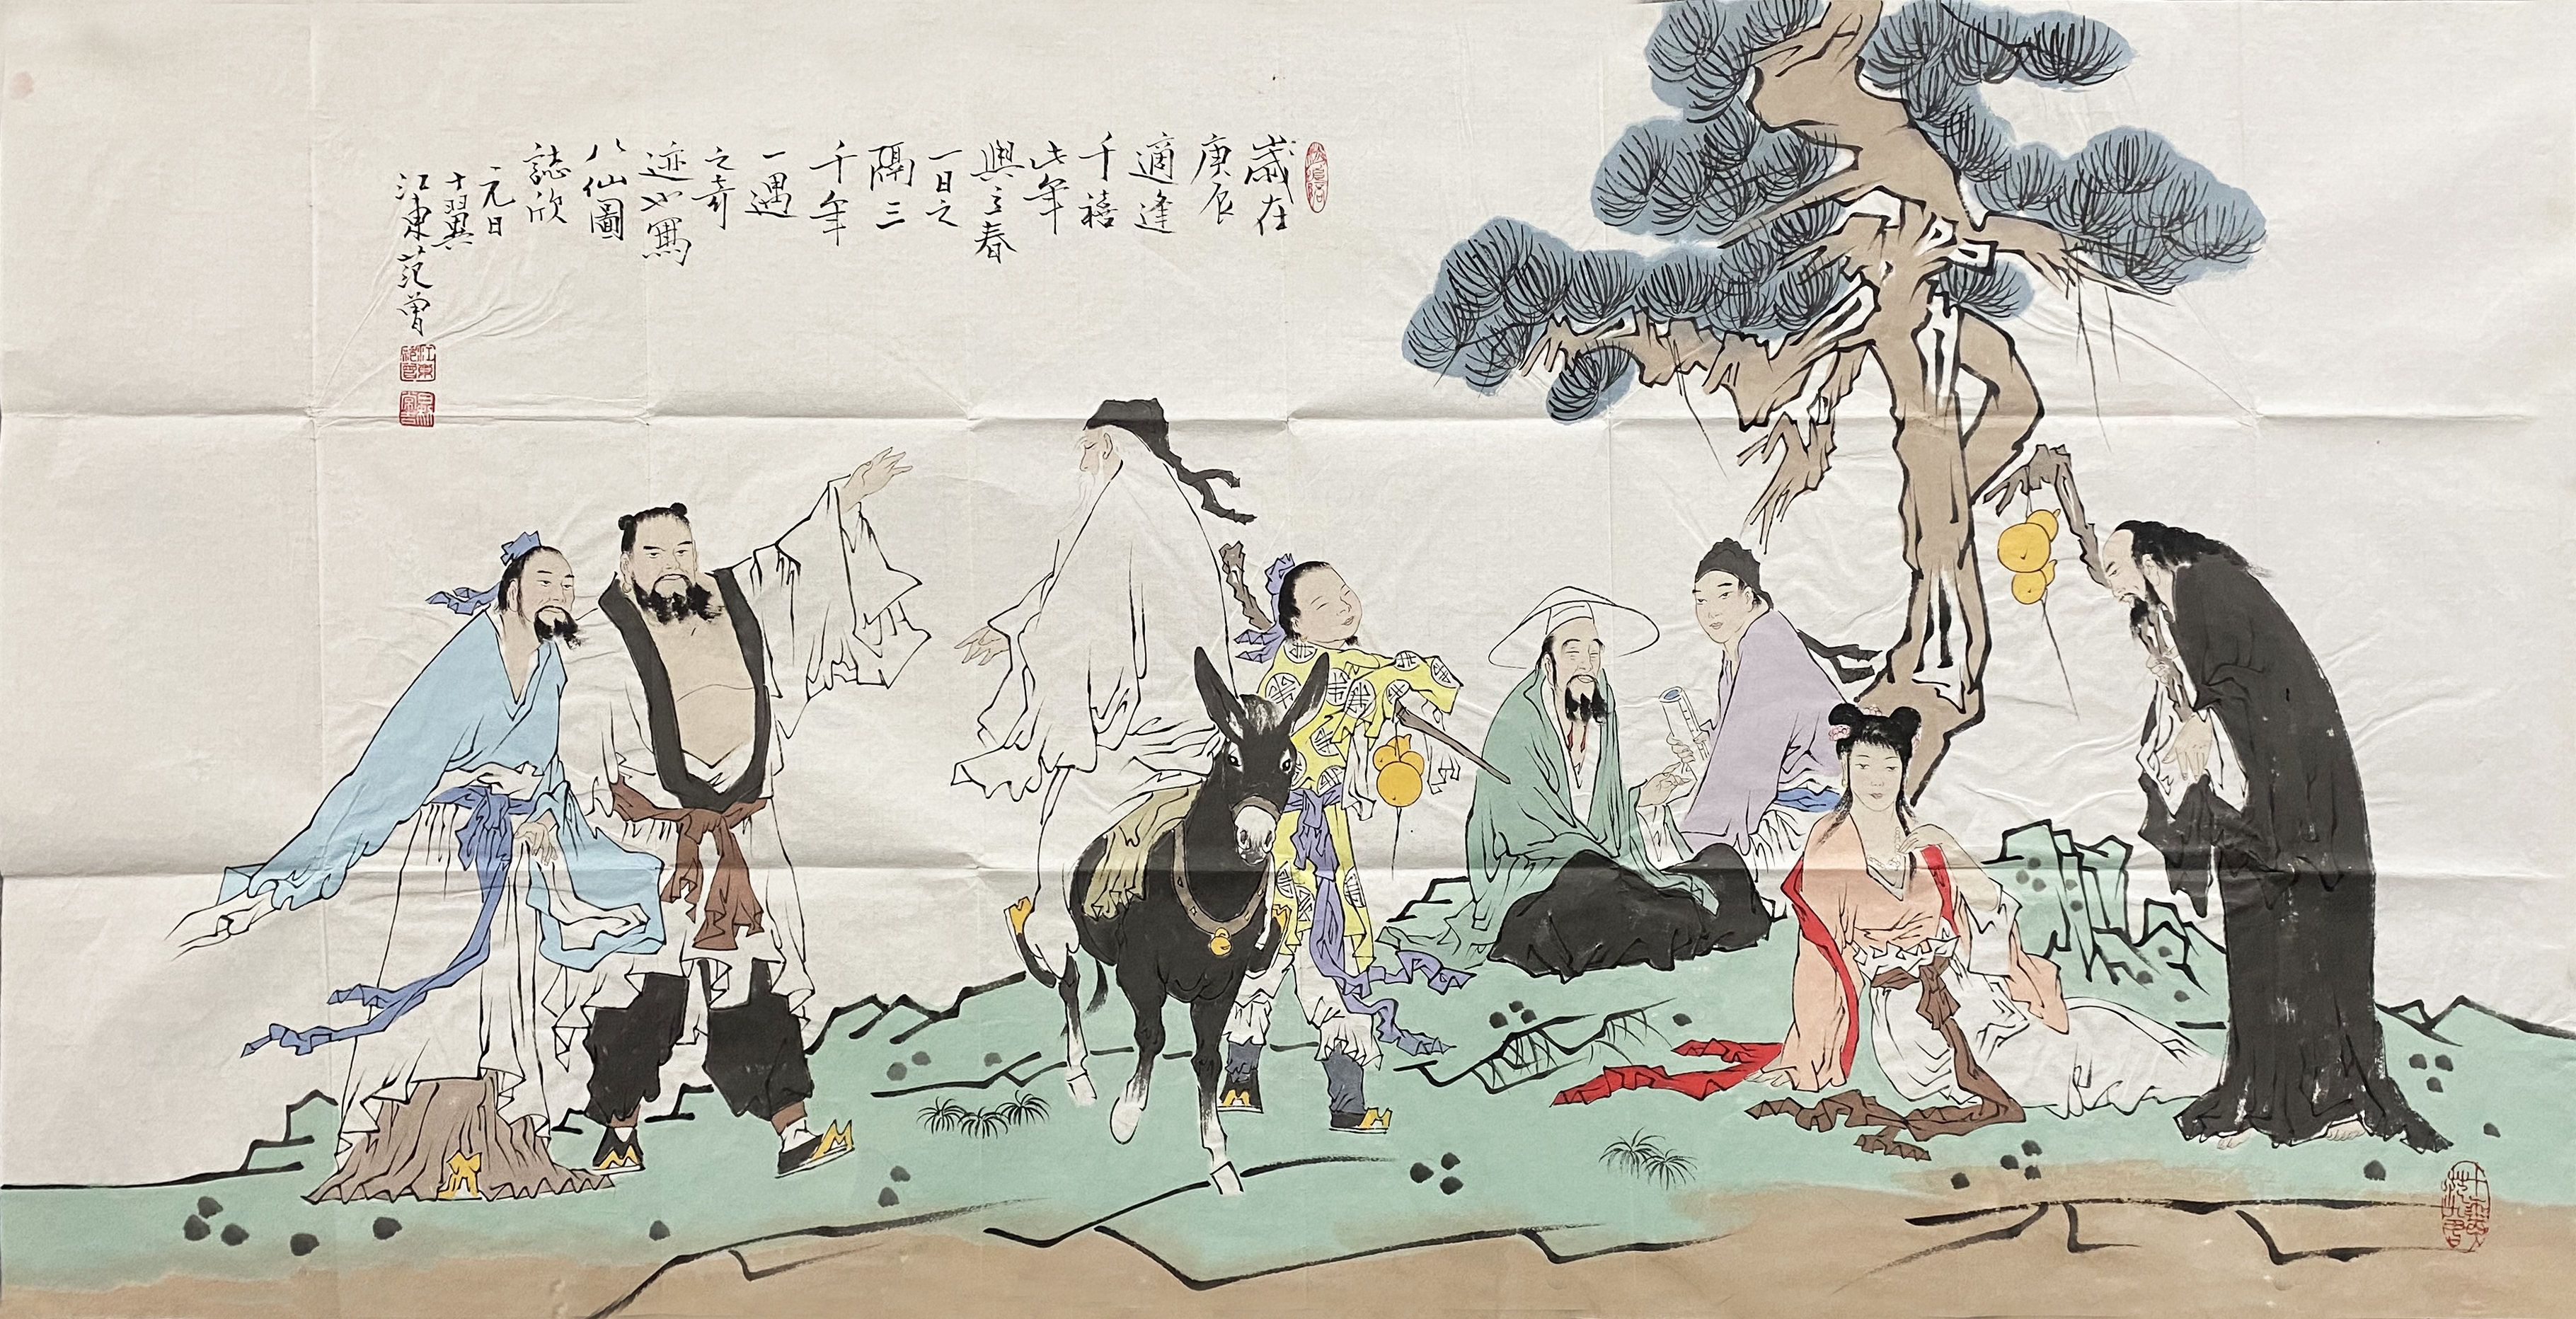 歲在
庚辰
適逢
千禧
此年
與立春
一日之
隔三
千年
一遇
之奇
迹也寫
八仙圖
誌欣
元日
十翼
江東范曾